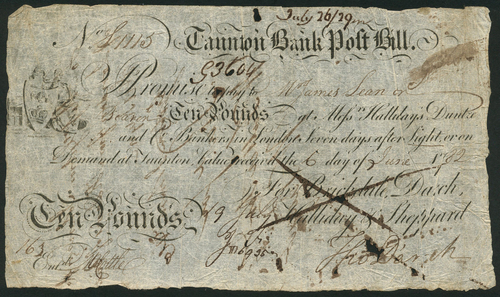 July 26/29
Taunton Bank Post Bill.
G3604
I Promise to pay to Mr James Lean or
Bearer Ten Pounds at Mess.rs Hallidays Duntze
and Co Bankers in London Seven days after Sight, or on
Demand at Taunton, Value received the 6 day of June 1792
For Brickdale, Darch,
Halliday & Sheppard
Ten Pounds
Tho Darch